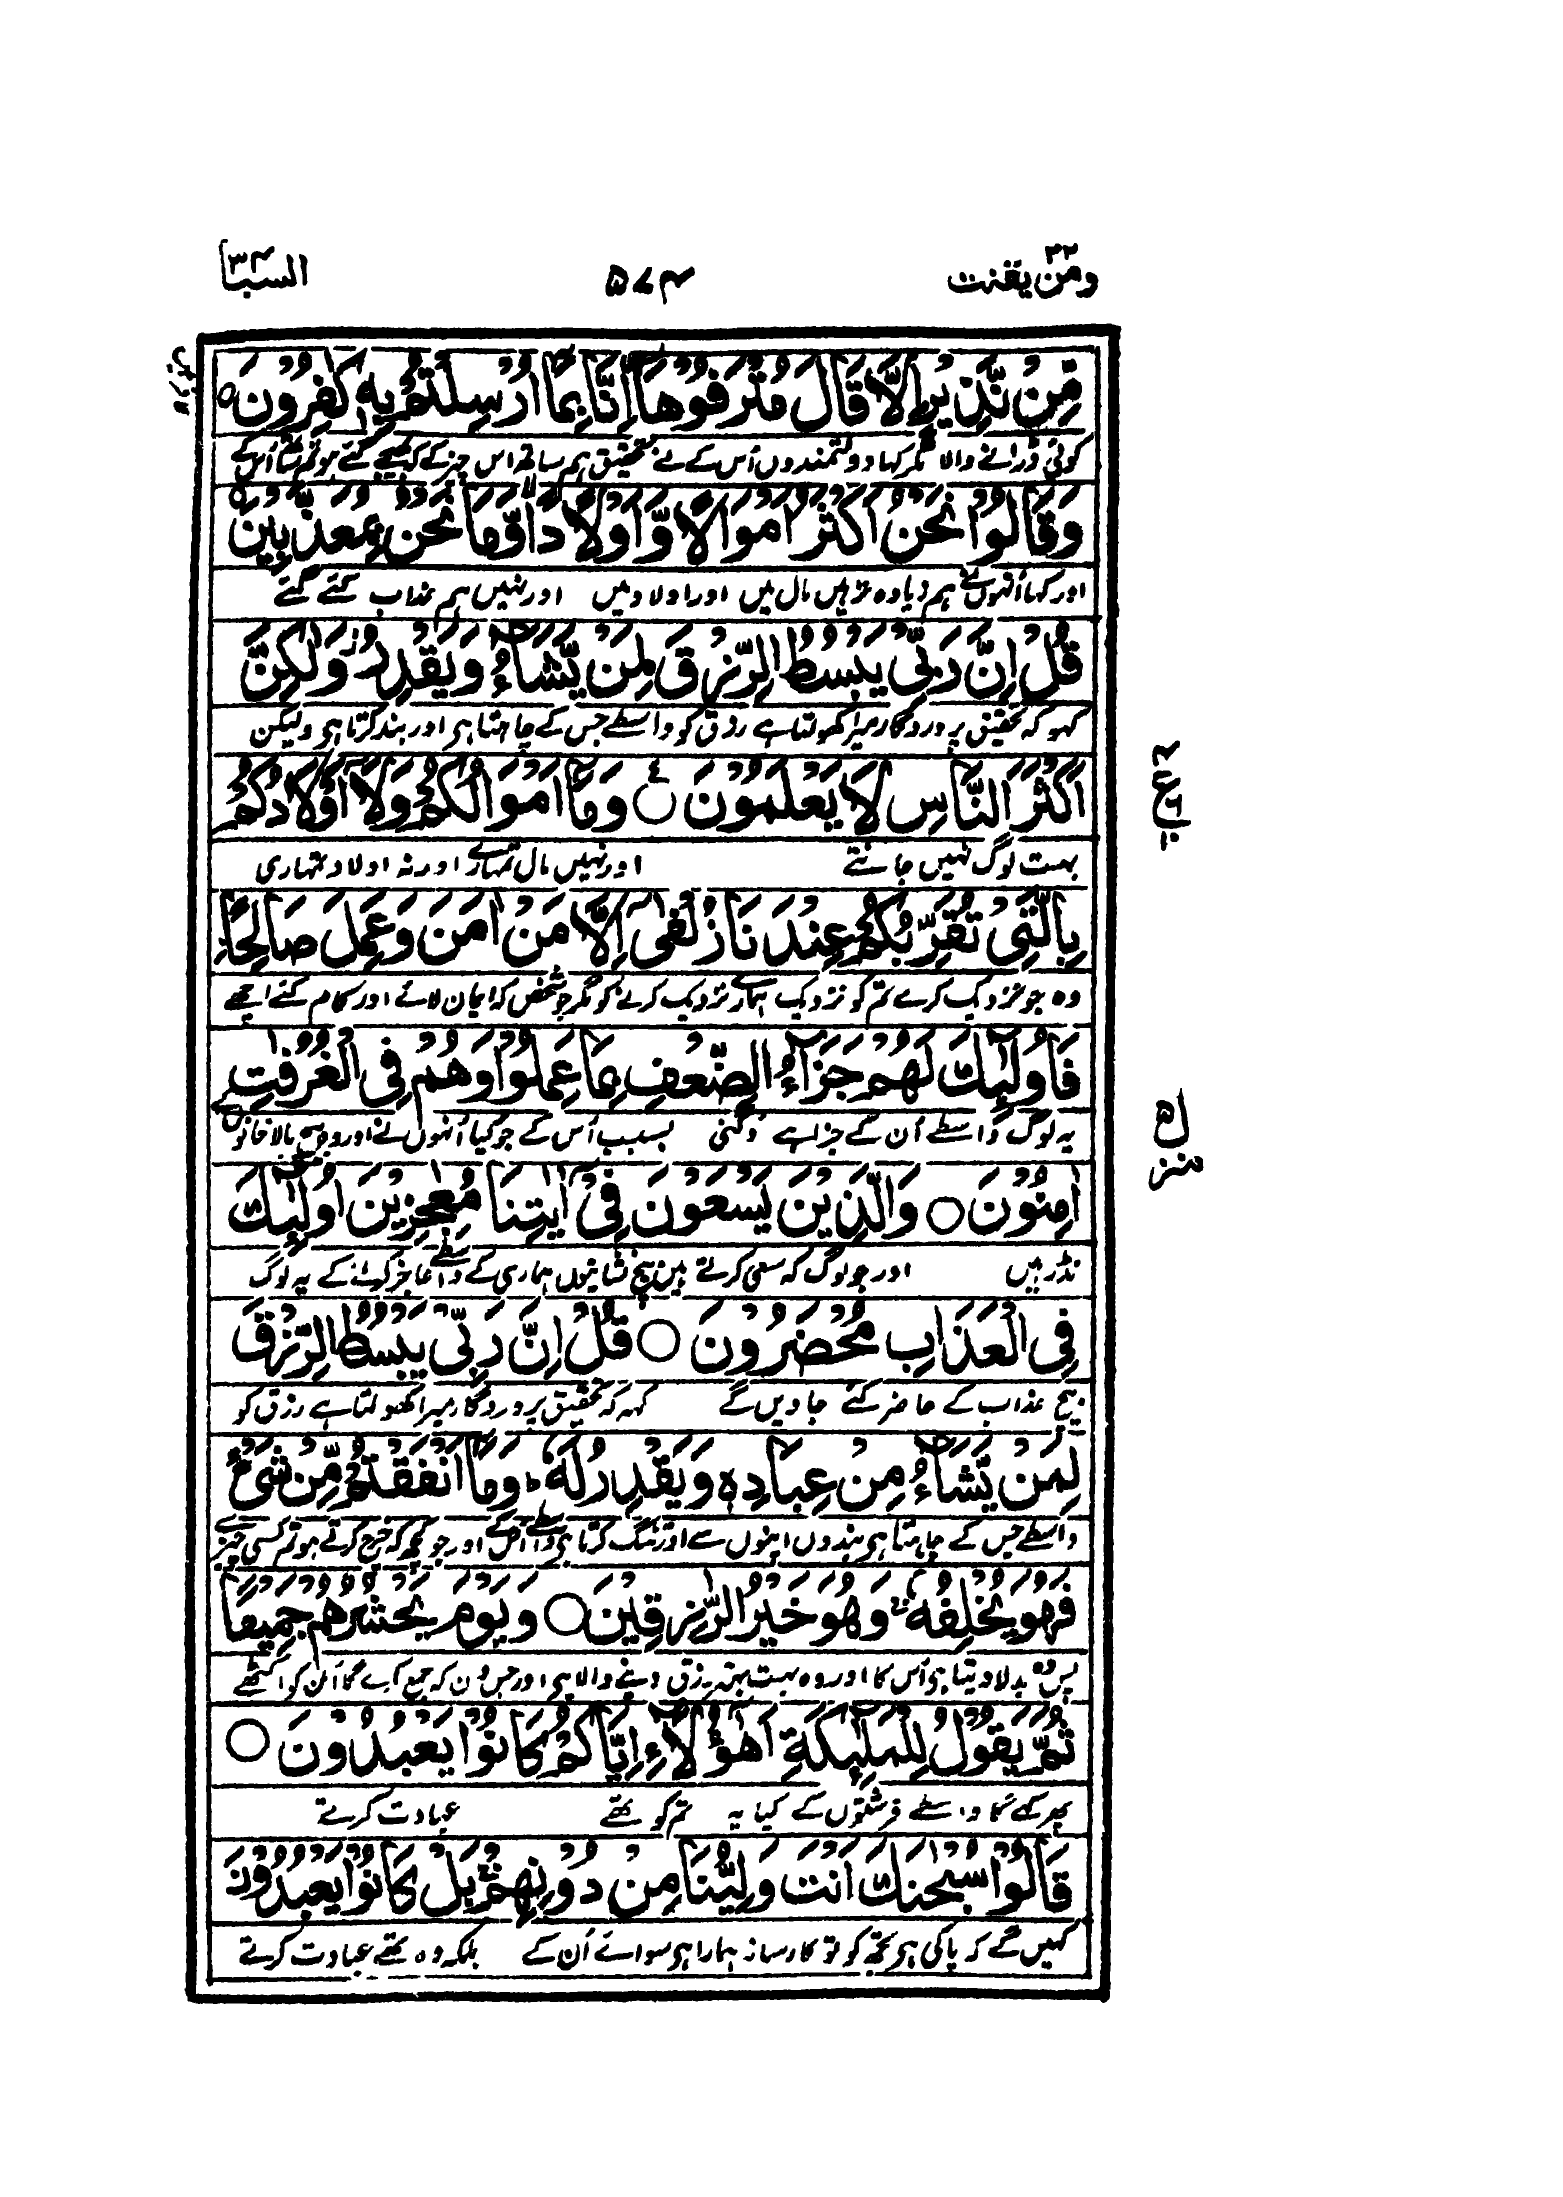 ومن یقنت ۲۲
۵۷۴
السبا ۳۴
مِّنْ نَّذِيْرٍ اِلَّا قَالَ مُتْرَفُوْهَاۤ اِنَّا بِمَاۤ اُرْسِلْتُمْ بِهٖ كٰفِرُوْنَ
کوئی ڈرانے والا مگر کہا دولتمندوں اُس کے نے تحقیق ہم ساتھ اس چیز کے کہ بھیجے گئے ہو تم ساتھ اُس کے
وَقَالُوْا نَحْنُ اَكْثَرُ اَمْوَالًا وَّاَوْلَادًا وَّمَا نَحْنُ بِمُعَذَّبِيْنَ
اور کہا اُنہوں نے ہم زیادہ تر ہیں مال میں اور اولاد میں اور نہیں ہم عذاب کئے گئے
قُلْ اِنَّ رَبِّيْ يَبْسُطُ الرِّزْقَ لِمَنْ يَّشَآءُ وَيَقْدِرُ وَلٰكِنَّ
کہو کہ تحقیق پروردگار میرا کھولتا ہے رزق کو واسطے جس کے چاہتا ہی اور بند کرتا ہی ولیکن
اَكْثَرَ النَّاسِ لَا يَعْلَمُوْنَ ○ وَمَاۤ اَمْوَالُكُمْ وَلَاۤ اَوْلَادُكُمْ
بہت لوگ نہیں جانتے اور نہیں مال تمہارے اور نہ اولاد تمہاری
بِالَّتِيْ تُقَرِّبُكُمْ عِنْدَنَا زُلْفٰۤى اِلَّا مَنْ اٰمَنَ وَعَمِلَ صَالِحًا
وہ جو نزدیک کرے تم کو نزدیک ہمارے نزدیک کرنے کو مگر جو شخص کہ ایمان لائے اور کام کئے اچھے
فَاُولٰٓئِكَ لَهُمْ جَزَآءُ الضِّعْفِ بِمَا عَمِلُوْا وَهُمْ فِي الْغُرُفٰتِ
یہ لوگ واسطے اُن کے جزا ہے دگنی بسبب اُس کے جو کیا اُنہوں نے اور وہ بیچ بالا خانوں کے
اٰمِنُوْنَ ○ وَالَّذِيْنَ يَسْعَوْنَ فِيْۤ اٰيٰتِنَا مُعٰجِزِيْنَ اُولٰٓئِكَ
نڈر ہیں اور جو لوگ کہ سعی کرتے ہیں بیچ نشانیوں ہماری کے واسطے عاجز کرنے کے یہ لوگ
فِي الْعَذَابِ مُحْضَرُوْنَ ○ قُلْ اِنَّ رَبِّيْ يَبْسُطُ الرِّزْقَ
بیچ عذاب کے حاضر کئے جاویں گے کہہ کہ تحقیق پروردگار میرا کھولتا ہے رزق کو
لِمَنْ يَّشَآءُ مِنْ عِبَادِهٖ وَيَقْدِرُ لَهٗ ؕ وَمَاۤ اَنْفَقْتُمْ مِّنْ شَيْءٍ
واسطے جس کے چاہتا ہی بندوں اپنوں سے اور تنگ کرتا ہی واسطے اُس کے اور جو کچھ کہ خرچ کرتے ہو تم کسی چیز سے
فَهُوَ يُخْلِفُهٗ ۚ وَهُوَ خَيْرُ الرّٰزِقِيْنَ ○ وَيَوْمَ يَحْشُرُهُمْ جَمِيْعًا
پس وہ بدلا دیتا ہی اُس کا اور وہ بہت بہتر رزق دینے والا ہی اور جس دن کہ جمع کرے گا اُن کو اکٹھے
ثُمَّ يَقُوْلُ لِلْمَلٰٓئِكَةِ اَهٰۤؤُلَآءِ اِيَّاكُمْ كَانُوْا يَعْبُدُوْنَ ○
پھر کہے گا واسطے فرشتوں کے کیا یہ تم کو تھے عبادت کرتے
قَالُوْا سُبْحٰنَكَ اَنْتَ وَلِيُّنَا مِنْ دُوْنِهِمْ ۚ بَلْ كَانُوْا يَعْبُدُوْنَ
کہیں گے کہ پاکی ہی تجھ کو تو کارساز ہمارا ہی سوائے اُن کے بلکہ وہ تھے عبادت کرتے
۴
ع
۱۰
منزل ۵